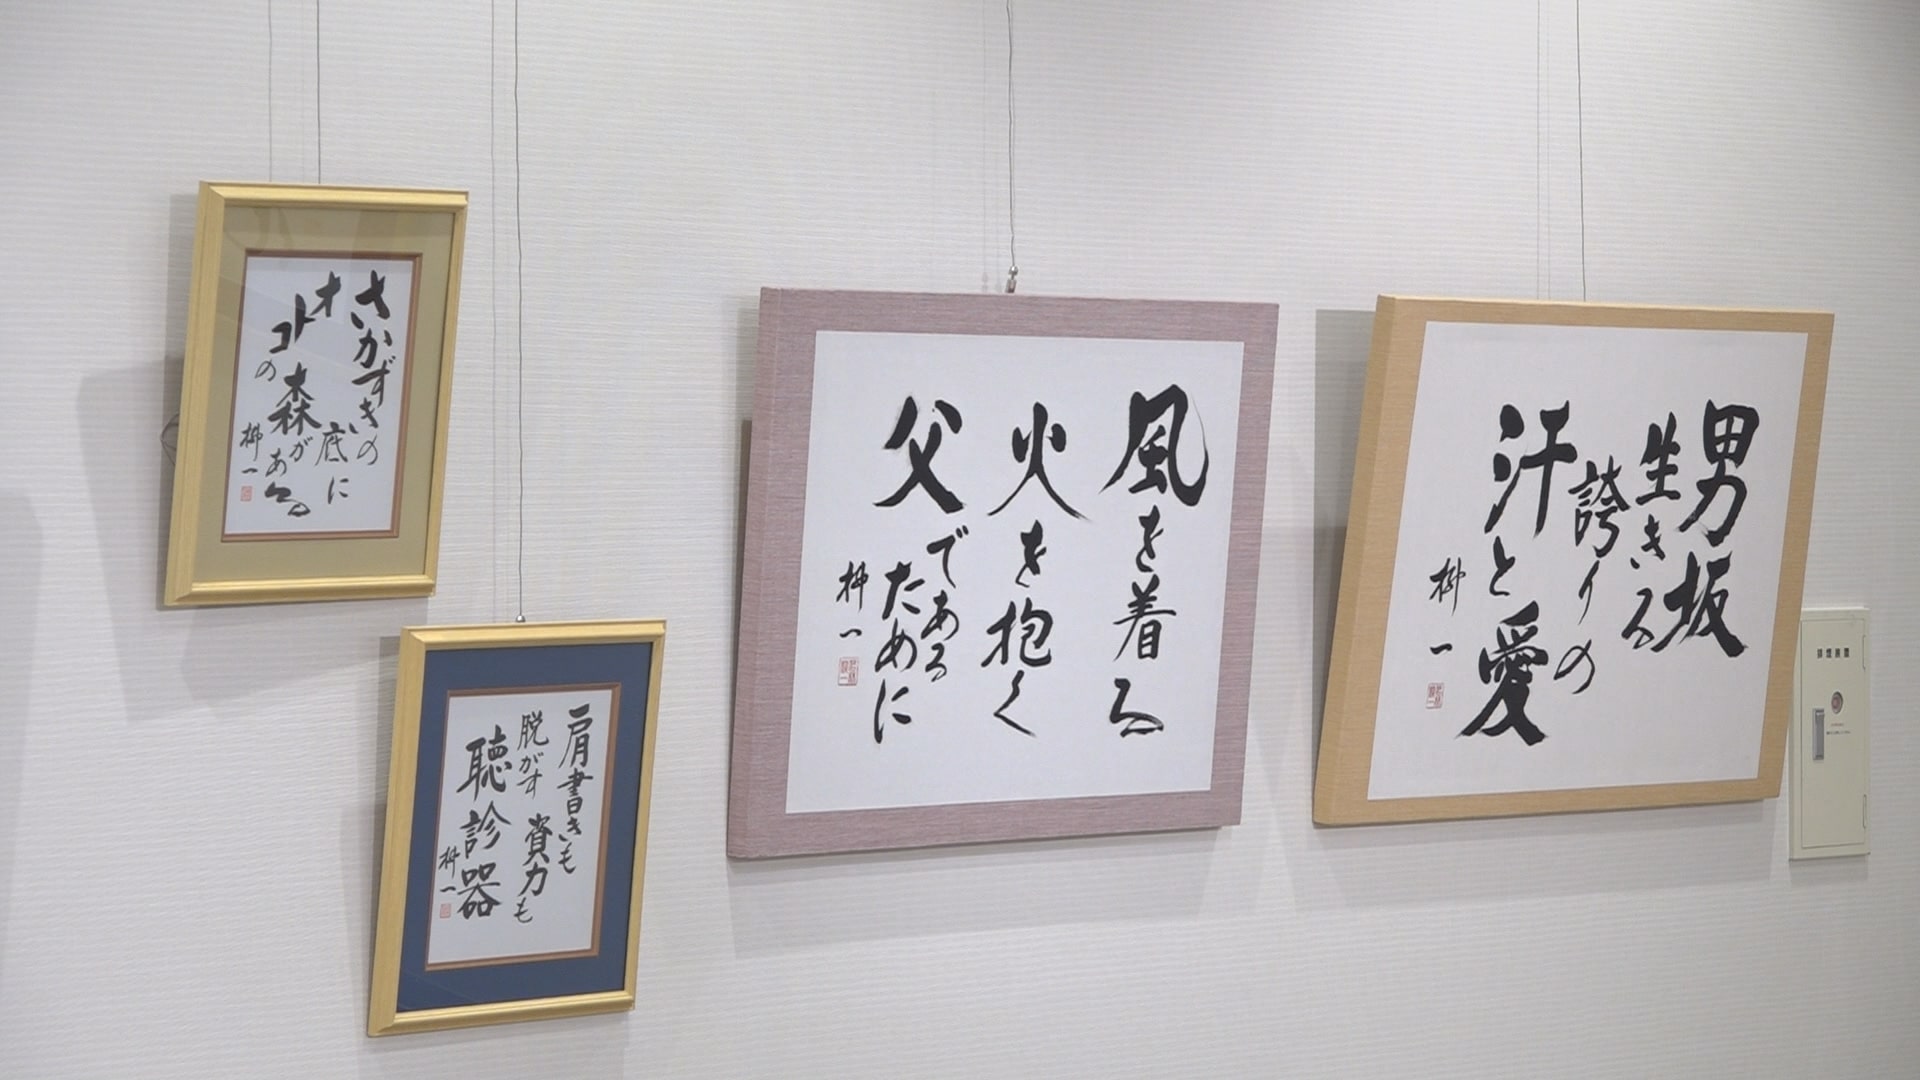 さかずきの
底に
オトコの
森がある
柳一
肩書きも
脱がす
資力も
聴診器
柳一
風を着る
火を抱く
父である
ために
柳一
男坂
生きる
誇りの
汗と愛
柳一